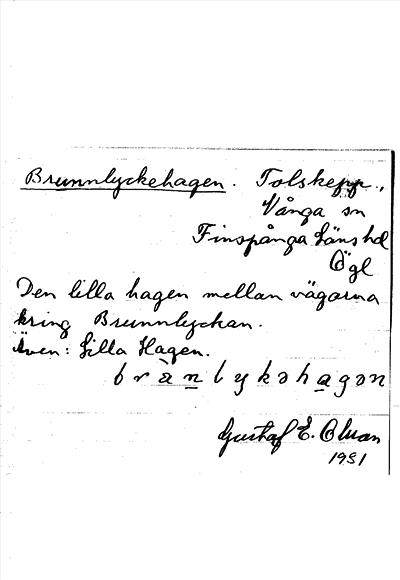 Brunnlyckehagen. Tolskepp.,
Vånga sn
Finspånga läns hd
Ögl
Den lilla hagen mellan vägarna
kring Brunnlyckan.
Även: Lilla Hagen.
brànlykəhagən
Gustaf E. Olson
1951